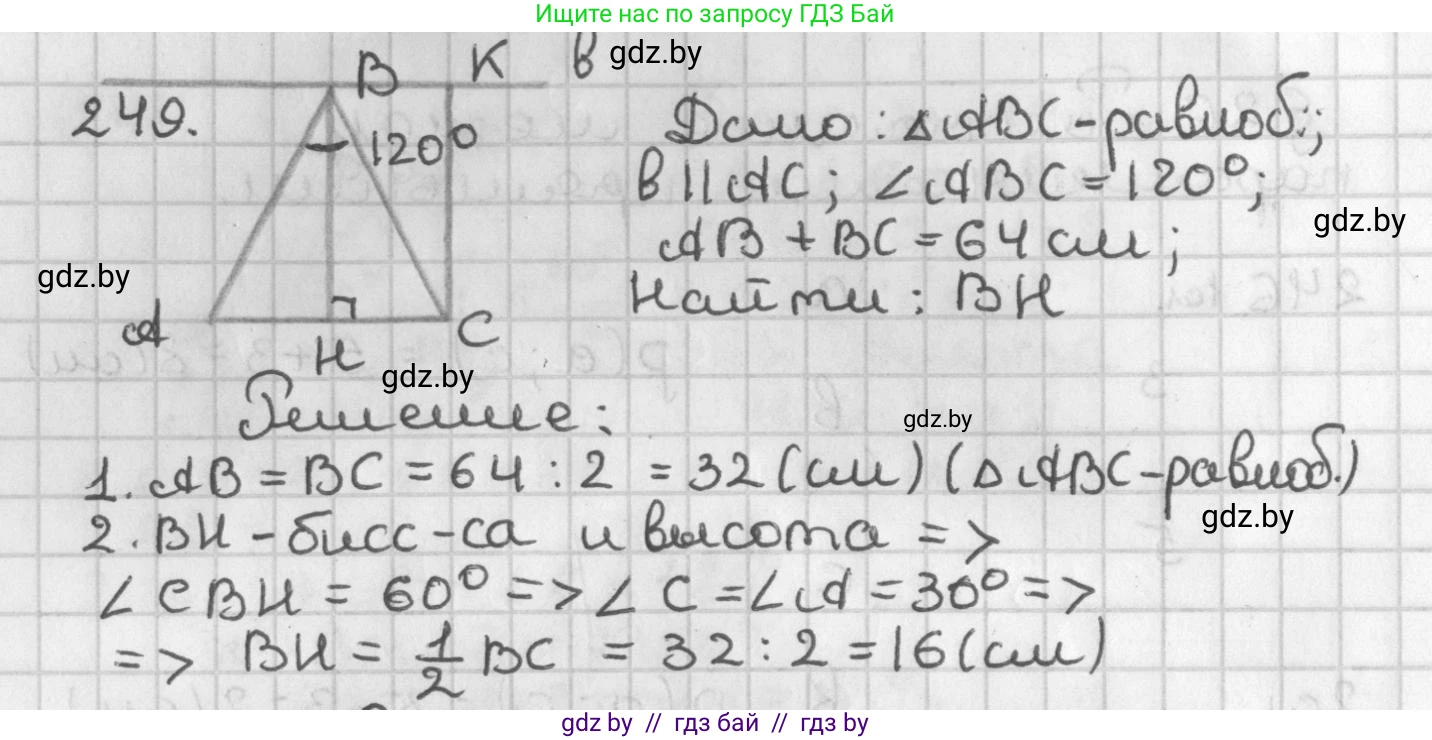 Ищите нас по запросу ГДЗ Бай
B K в gdz.by
249.
120°
Дано: △ABC-равноб.;
в||AC; ∠ABC=120°;
gdz.by
AB+BC=64см;
gdz.by
Найти: BH
A
C
H
gdz.by
Решение:
gdz.by
1. AB=BC=64:2=32(см) (△ABC-равноб.)
gdz.by
2. BH-бисс-са и высота =>
∠CBH=60°=>∠C=∠A=30°=>
=> BH=1/2 BC=32:2=16(см)
gdz by // гдз бай // гдз by